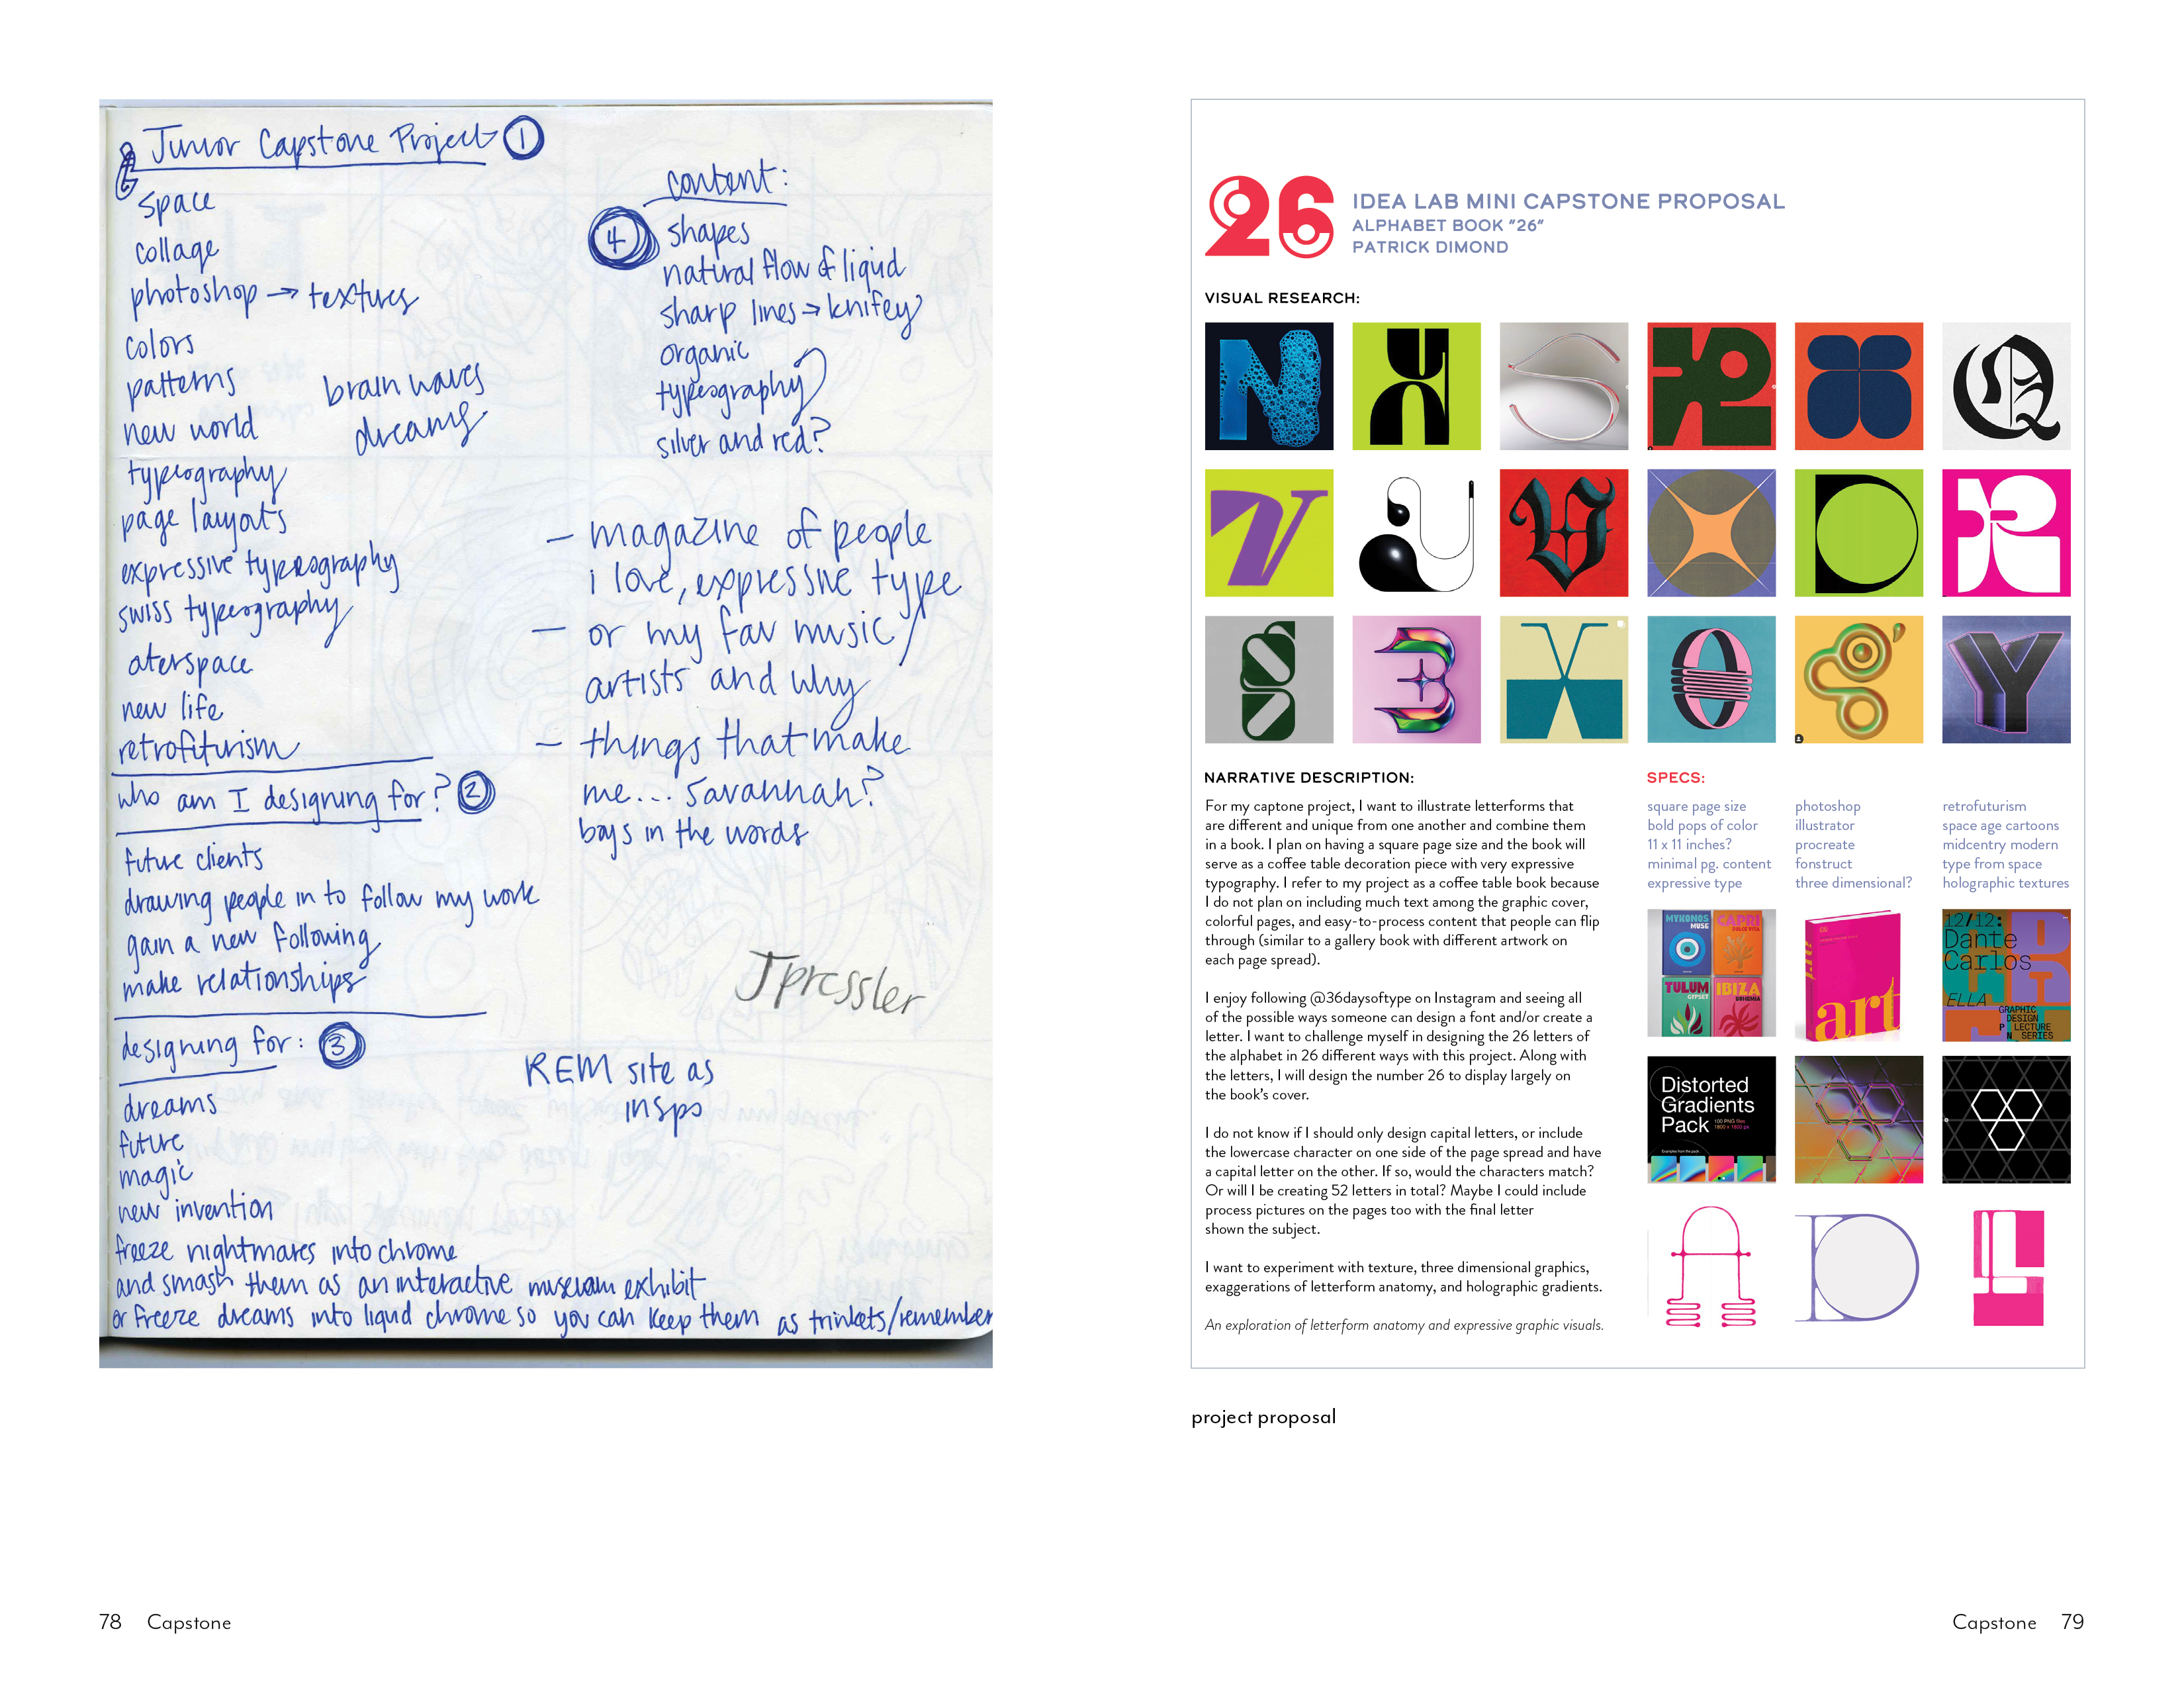 Junior Capstone Project 1
space
collage
photoshop → textures
colors
patterns
new world
brain waves
dreams
typeography
page layouts
expressive typeography
swiss typeography
aterspace
new life
retrofuturism
who am I designing for? 2
future clients
drawing people in to follow my work
gain a new following
make relationships
designing for: 3
dreams
future
magic
new invention
freeze nightmares into chrome
and smash them as an interactive museum exhibit
or freeze dreams into liquid chrome so you can keep them as trinkets/remember
content:
4 shapes
natural flow of liquid
sharp lines → knifey
organic
typeography
silver and red?
- magazine of people
i love, expressive type
- or my fav music
artists and why
- things that make
me... Savannah?
boys in the words
Jpressler
REM site as
inspo
78 Capstone
26
IDEA LAB MINI CAPSTONE PROPOSAL
ALPHABET BOOK "26"
PATRICK DIMOND
VISUAL RESEARCH:
NARRATIVE DESCRIPTION:
For my captone project, I want to illustrate letterforms that
are different and unique from one another and combine them
in a book. I plan on having a square page size and the book will
serve as a coffee table decoration piece with very expressive
typography. I refer to my project as a coffee table book because
I do not plan on including much text among the graphic cover,
colorful pages, and easy-to-process content that people can flip
through (similar to a gallery book with different artwork on
each page spread).
I enjoy following @36daysoftype on Instagram and seeing all
of the possible ways someone can design a font and/or create a
letter. I want to challenge myself in designing the 26 letters of
the alphabet in 26 different ways with this project. Along with
the letters, I will design the number 26 to display largely on
the book's cover.
I do not know if I should only design capital letters, or include
the lowercase character on one side of the page spread and have
a capital letter on the other. If so, would the characters match?
Or will I be creating 52 letters in total? Maybe I could include
process pictures on the pages too with the final letter
shown the subject.
I want to experiment with texture, three dimensional graphics,
exaggerations of letterform anatomy, and holographic gradients.
An exploration of letterform anatomy and expressive graphic visuals.
SPECS:
square page size
bold pops of color
11 x 11 inches?
minimal pg. content
expressive type
photoshop
illustrator
procreate
fonstruct
three dimensional?
retrofuturism
space age cartoons
midcentry modern
type from space
holographic textures
MYKONOS
MUSE
CAPRI
DOLCE VITA
TULUM
GYPSET
IBIZA
BOHEMIA
art
12/12:
Dante
Carlos
ELLA
GRAPHIC
DESIGN
P LECTURE
N SERIES
Distorted
Gradients
Pack
100 PNG files
1800 x 1800 px
Examples from the pack
project proposal
Capstone 79